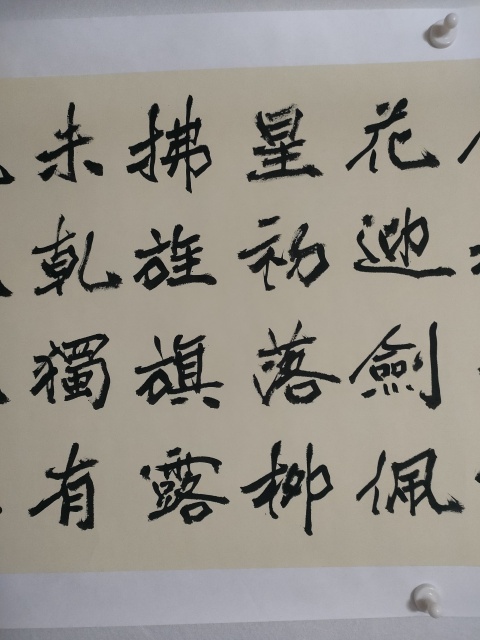 花迎劍佩
星初落柳
拂旌旗露
未乾獨有